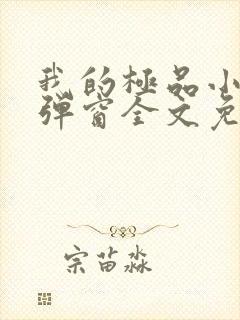 我的極品小
彈窗全文免
宗苗淼